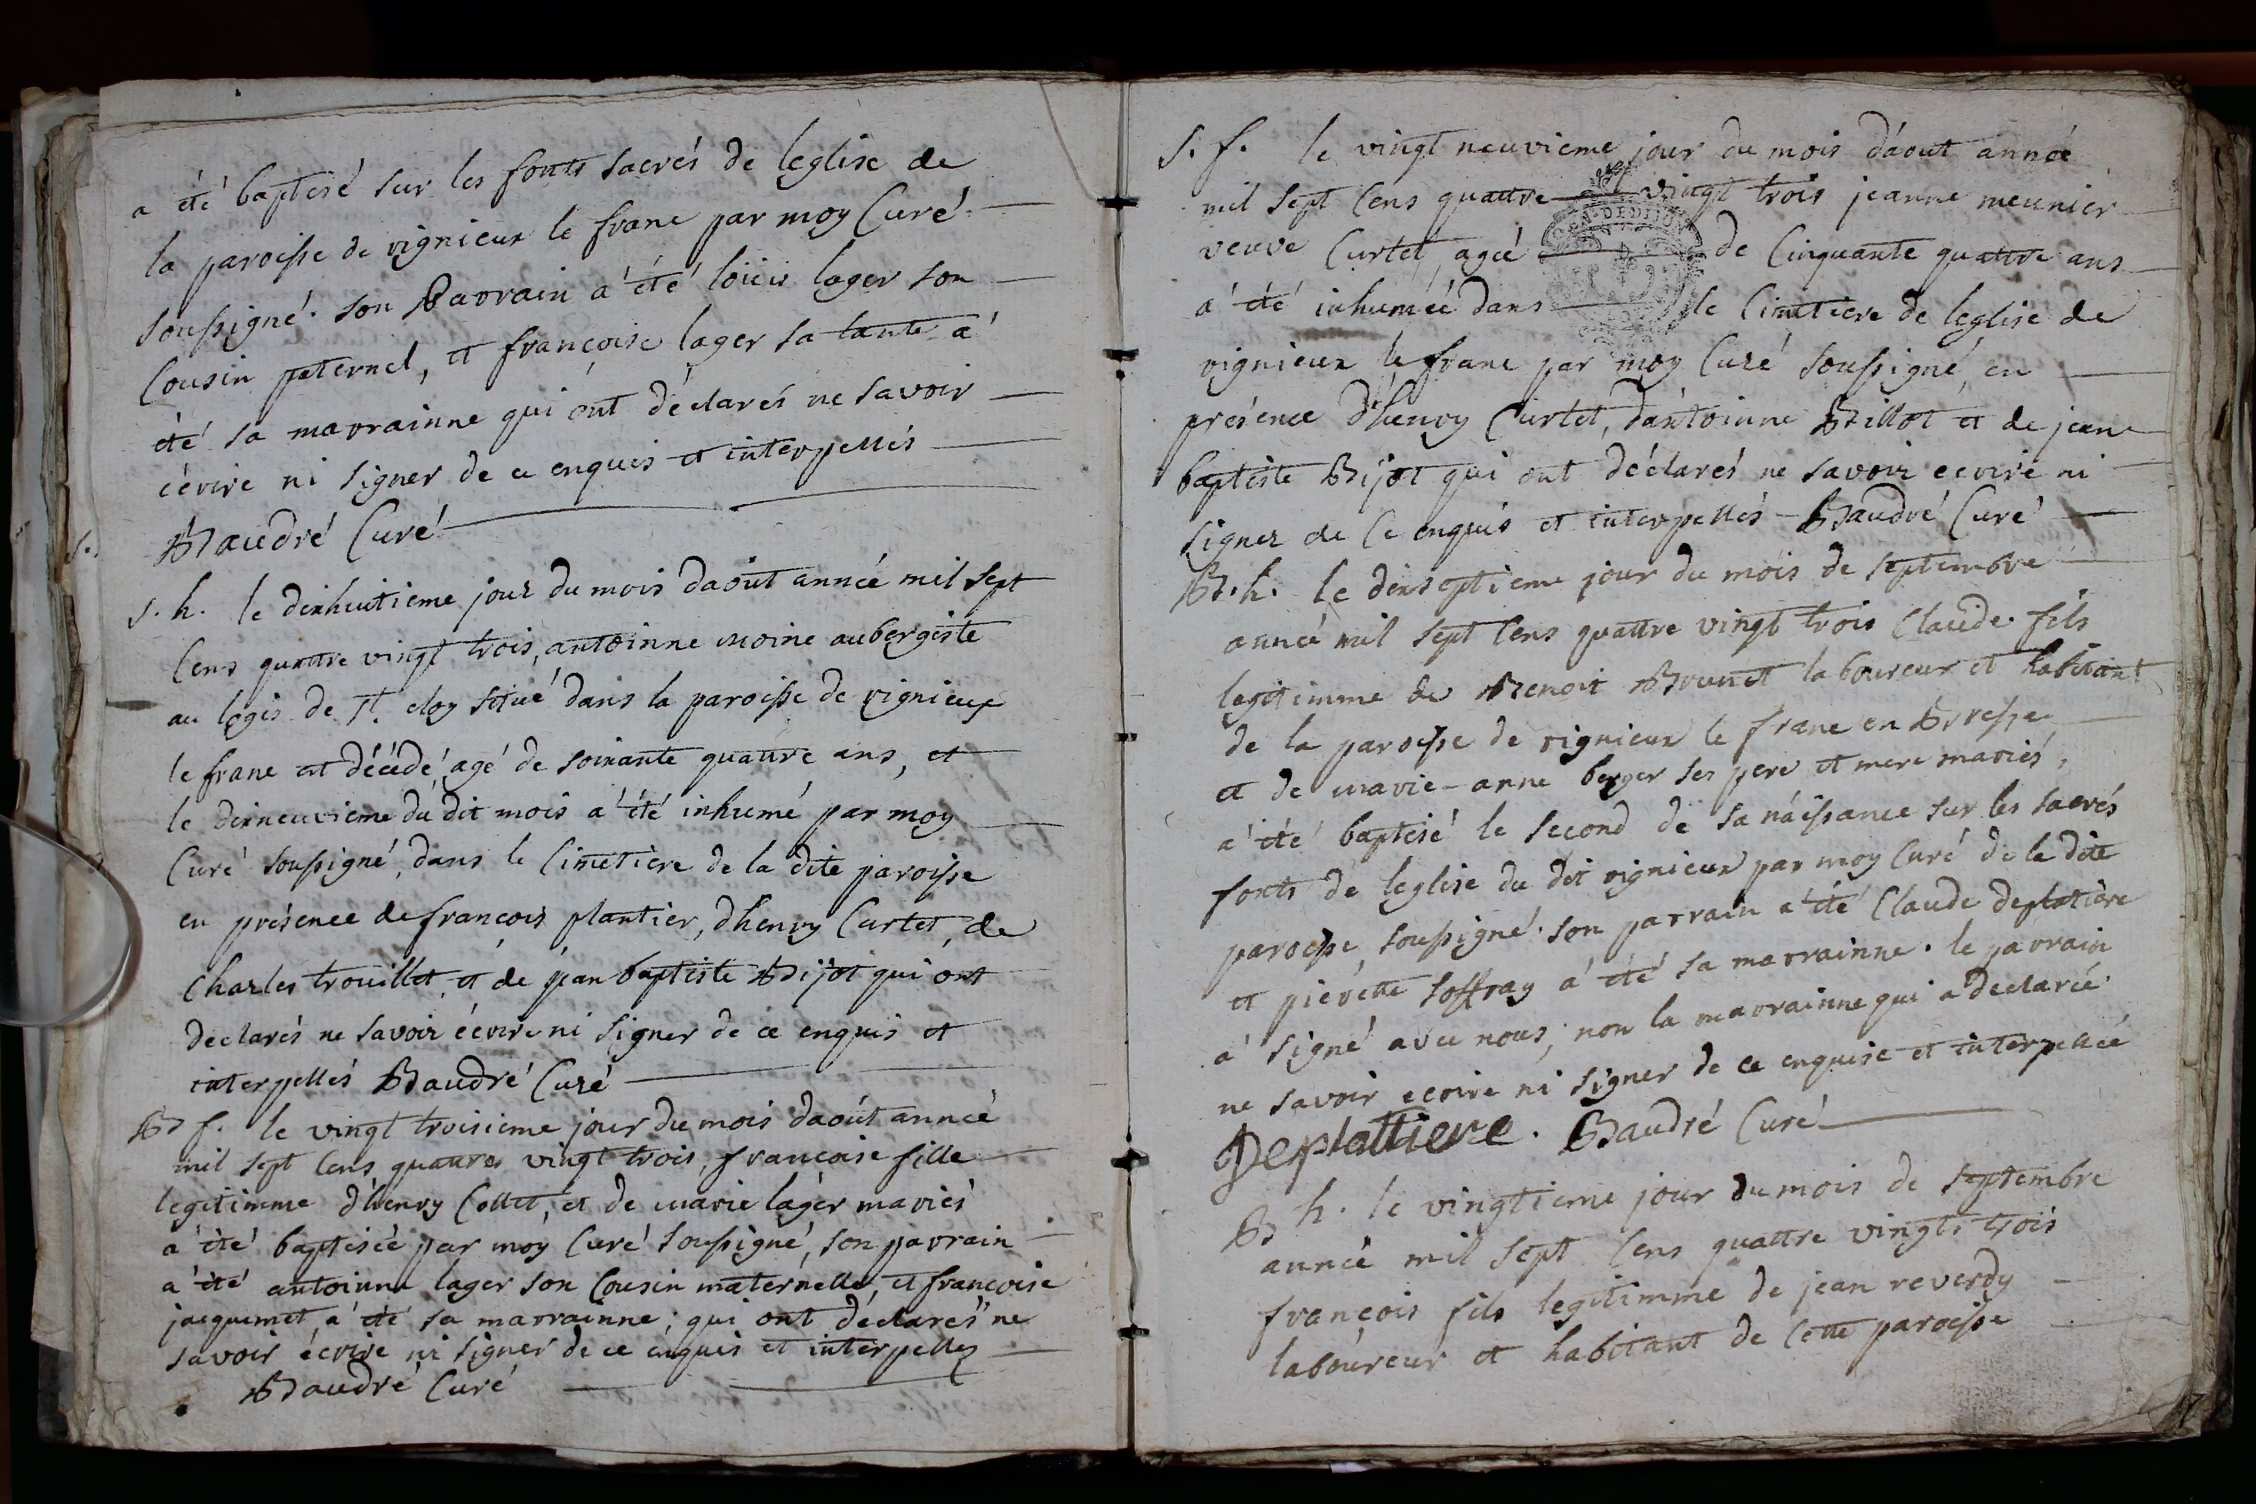 a été baptisé sur les fonts sacrés de leglise de
la paroisse de vignieux le franc par moy Curé
soussigné. son Parrain a été loüis lager son
Cousin paternel, et françoise lager sa tante a
été sa marrainne qui ont déclarés ne savoir
écrire ni signer de ce enquis et interpellés
Baudré Curé
S. h. le dixhuitieme jour du mois daoût année mil sept
Cens quattre vingt trois, antoinne moine aubergiste
au logis de St. eloy situé dans la paroisse de vignieux
le franc est décédé, agé de soixante quattre ans, et
le dixneuvieme du dit mois a été inhumé par moy
Curé soussigné, dans le Cimetiere de la dite paroisse
en présence de françois plantier, dhenry Curtet, de
Charles trouillet, et de jean baptiste Bijot qui ont
declarés ne savoir écrire ni signer de ce enquis et
interpellés Baudré Curé
B f. le vingt troisieme jour du mois daoút année
mil sept Cens quattre vingt trois, françoise fille
legitimme d'henry Collet, et de marie lager mariés
a été baptisée par moy Curé soussigné, son parrain
a été antoinne lager son Cousin maternelle, et françoise
jacquemet a été sa marrainne; qui ont déclarés ne
savoir écrire ni signer de ce enquis et interpellez
Baudré Curé
S. f. le vingt neuvieme jour du mois d'aout année
mil sept Cens quattre vingt trois jeanne meunier
veuve Curtet, agée de Cinquante quattre ans
a été inhumée dans le Cimetiere de leglise de
vignieux le franc par moy Curé soussigné, en
présence d'henry Curtet, d'antoinne Billot et de jean
baptiste Bijot qui ont déclarés ne savoir ecrire ni
signer de Ce enquis et interpellés - Baudré Curé
B. h. le dixseptieme jour du mois de septembre
année mil sept Cens quattre vingt trois Claude fils
legitimme de Benoit Brunet laboureur et habitant
de la paroisse de vignieux le franc en Bresse
et de marie-anne berger ses pere et mere mariés,
a été baptisé le second de sa naissance sur les sacrés
fonts de leglise du dit vignieux par moy Curé de la dite
paroisse, soussigné. son parrain a été Claude deplatière
et pierette soffray a été sa marrainne. le parrain
a signé avec nous, non la marrainne qui a declarée
ne savoir ecrire ni signer de ce enquise et interpellée
Deplattiere. Baudré Curé
B h. le vingtieme jour du mois de septembre
année mil sept Cens quattre vingts trois
françois fils legitimme de jean reverdy
laboureur et habitant de Cette paroisse